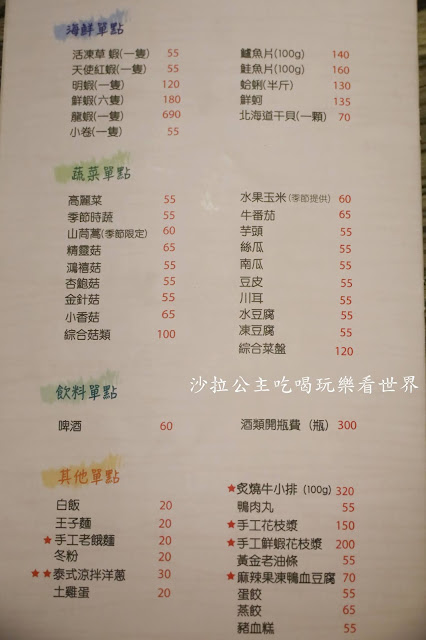 海鮮單點
活凍草蝦(一隻) 55
天使紅蝦(一隻) 55
明蝦(一隻) 120
鮮蝦(六隻) 180
龍蝦(一隻) 690
小卷(一隻) 55
鱸魚片(100g) 140
鮭魚片(100g) 160
蛤蜊(半斤) 130
鮮蚵 135
北海道干貝(一顆) 70
蔬菜單點
高麗菜 55
季節時蔬 55
山茼蒿(季節限定) 60
精靈菇 65
鴻禧菇 55
杏鮑菇 55
金針菇 55
小香菇 65
綜合菇類 100
水果玉米(季節提供) 60
牛番茄 65
芋頭 55
絲瓜 55
南瓜 55
豆皮 55
川耳 55
水豆腐 55
凍豆腐 55
綜合菜盤 120
沙拉公主吃喝玩樂看世界
飲料單點
啤酒 60
酒類開瓶費(瓶) 300
其他單點
白飯 20
王子麵 20
★手工老餓麵 20
冬粉 20
★★泰式涼拌洋蔥 30
土雞蛋 20
★炙燒牛小排(100g) 320
鴨肉丸 55
★手工花枝漿 150
★手工鮮蝦花枝漿 200
黃金老油條 55
★麻辣果凍鴨血豆腐 70
蛋餃 55
燕餃 65
豬血糕 55